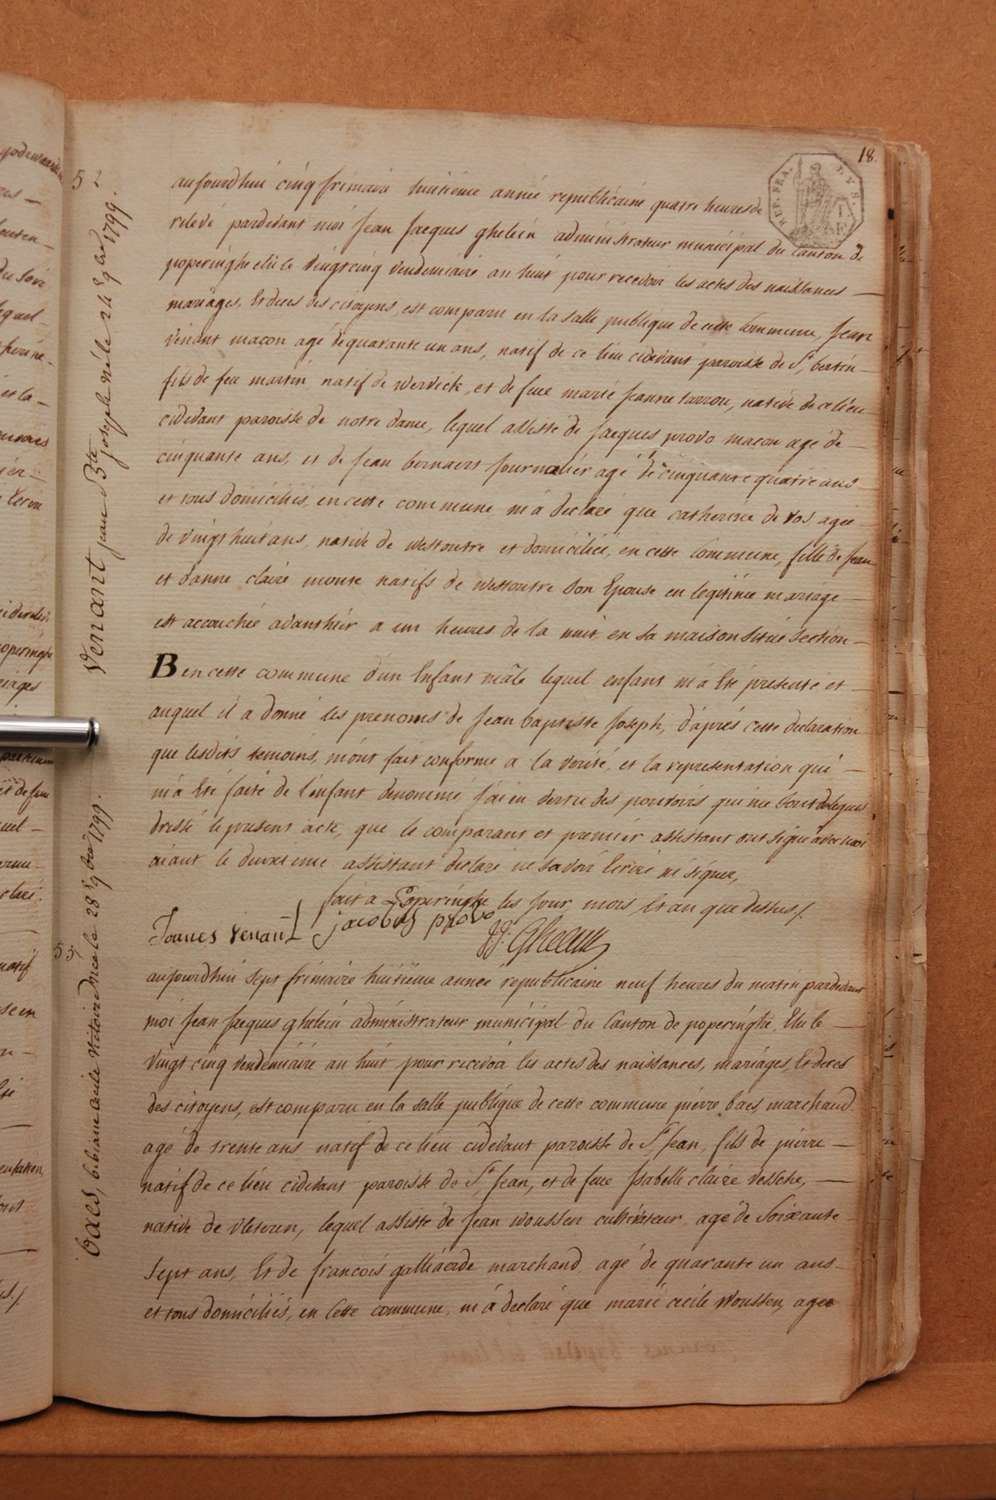 18.
REP. FRA.
5
Venant jean Bte joseph né le 24 9bre 1799.
aujourdhui cinq frimaire huitieme année republicaine quatre heures de
relevé pardevant moi Jean Jacques ghelein administrateur municipal du Canton de
poperinghe elu le vingt cinq vendemiaire an huit pour recevoir les actes des naissances —
mariages, et deces des citoyens, est comparu en la salle publique de cette commune, Jean
venant macon agé de quarante un ans, natif de ce lieu cidevant paroisse de St. bertin —
fils de feu martin natif de wervick, et de feue marie jeanne tarrou, native de ce lieu
cidevant paroisse de notre dame, lequel assisté de jacques provo macon agé de —
cinquante ans, et de jean bernaert journalier agé de cinquante quatre ans —
et tous domiciliés, en cette commune, m'a declaré que catherine de vos agée
de vingt huit ans, native de westoutre et domiciliée, en cette commune, fille de jean
et d'anne claire monte natifs de westoutre son epouse en legitime mariage —
est accouchée avanthier a un heures de la nuit en sa maison situé section —
B en cette commune d'un Enfant mâle lequel enfant m'a été presenté et —
auquel il a donné les prenoms de Jean baptiste Joseph, d'après cette declaration
que lesdits temoins, m'ont fait conforme a la verité, et la representation qui —
m'a été faite de l'enfant denommé j'ai en vertu des pouvoirs qui me sont delegués
dressé le present acte, que le comparant et premier assistant ont signé avec moi
aiant le deuxieme assistant declaré ne savoir ecrire ni signer,
fait a Poperinghe les jour mois et an que dessus /.
Joannes venant jacobus provo JJ. Ghelein
53.
baes, bibiane cecile victoire née le 28 9bre 1799.
aujourdhui sept frimaire huitieme année republicaine neuf heures du matin pardevant
moi Jean Jacques ghelein administrateur municipal du Canton de poperinghe Elu le —
vingt cinq vendemiaire an huit pour recevoir les actes des naissances, mariages, et deces
des citoyens, est comparu en la salle publique de cette commune pierre baes marchand
agé de trente ans natif de ce lieu cidevant paroisse de St. Jean, fils de pierre —
natif de ce lieu cidevant paroisse de St. Jean, et de feue Isabelle claire —
native de vleteren, lequel assisté de Jean woussen cultivateur agé de soixante
sept ans, et de francois galliaerde marchand agé de quarante un ans —
et tous domiciliés, en cette commune, m'a declaré que marie cecile woussen, agee